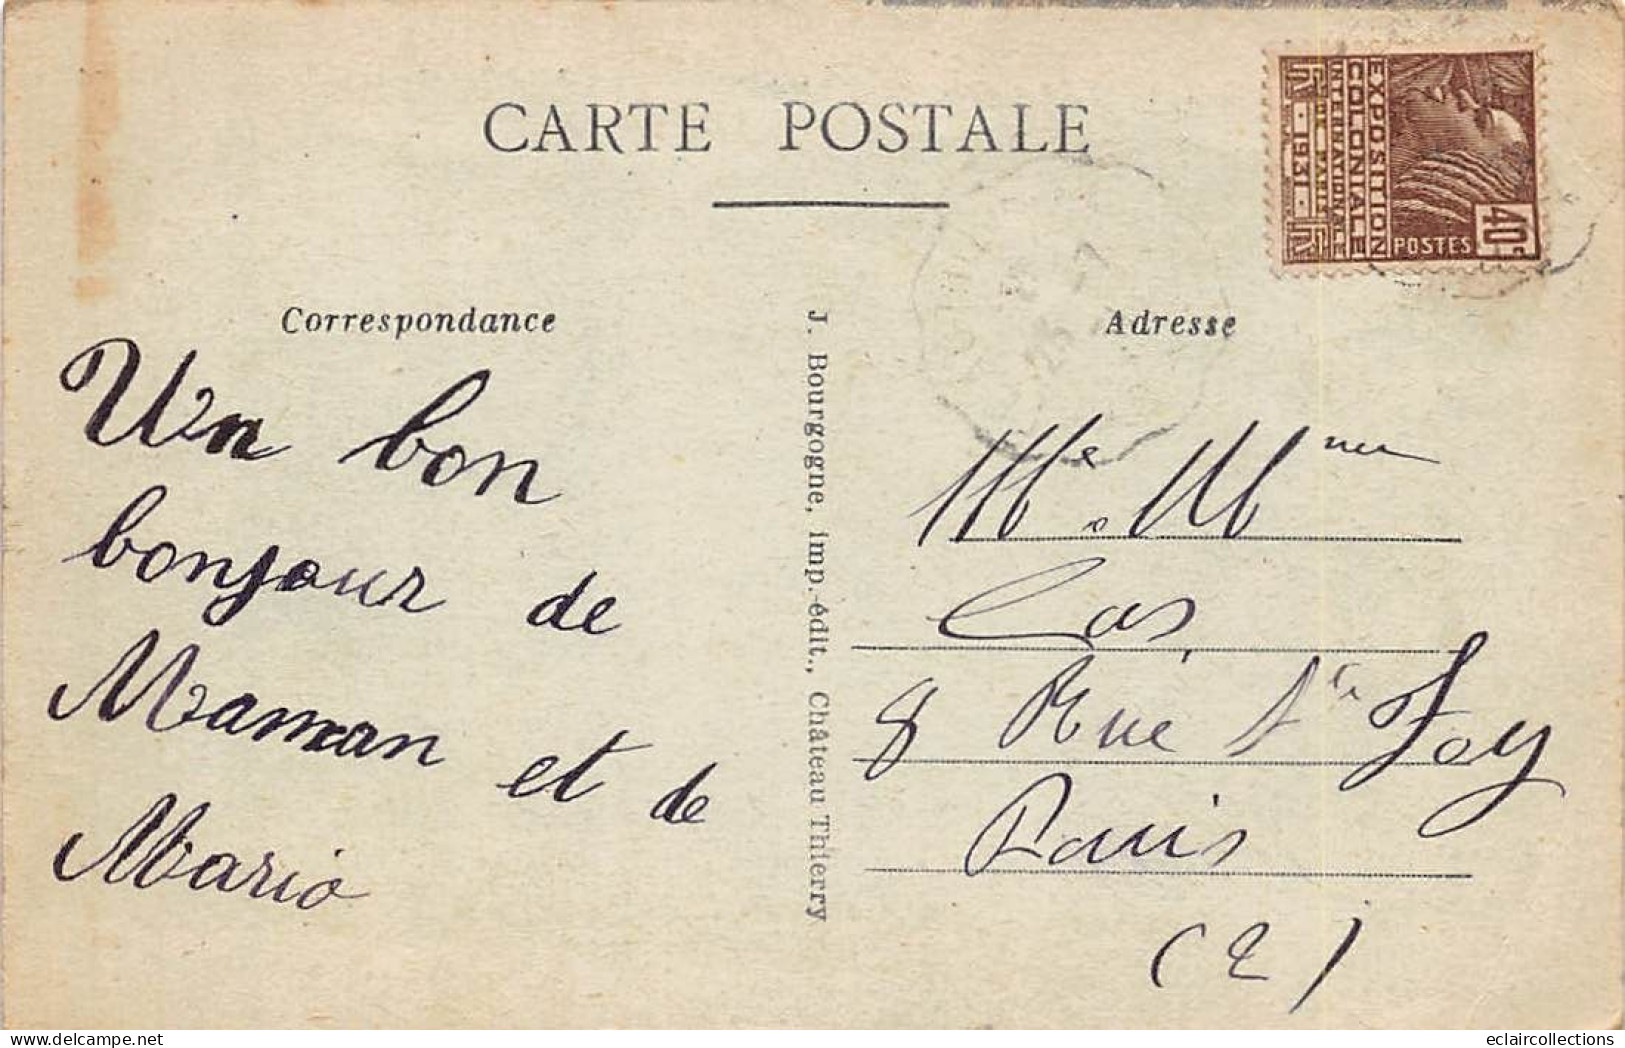 CARTE POSTALE
EXPOSITION
COLONIALE
INTERNATIONALE
DE PARIS
RF · 1931 · RF
POSTES
40c
Correspondance
Adresse
Un bon
bonjour de
Maman et de
Mario
J. Bourgogne, imp.-édit., Château Thierry
Cas,
8 Rue Ste Foy
Paris
(2)
eclaircollections